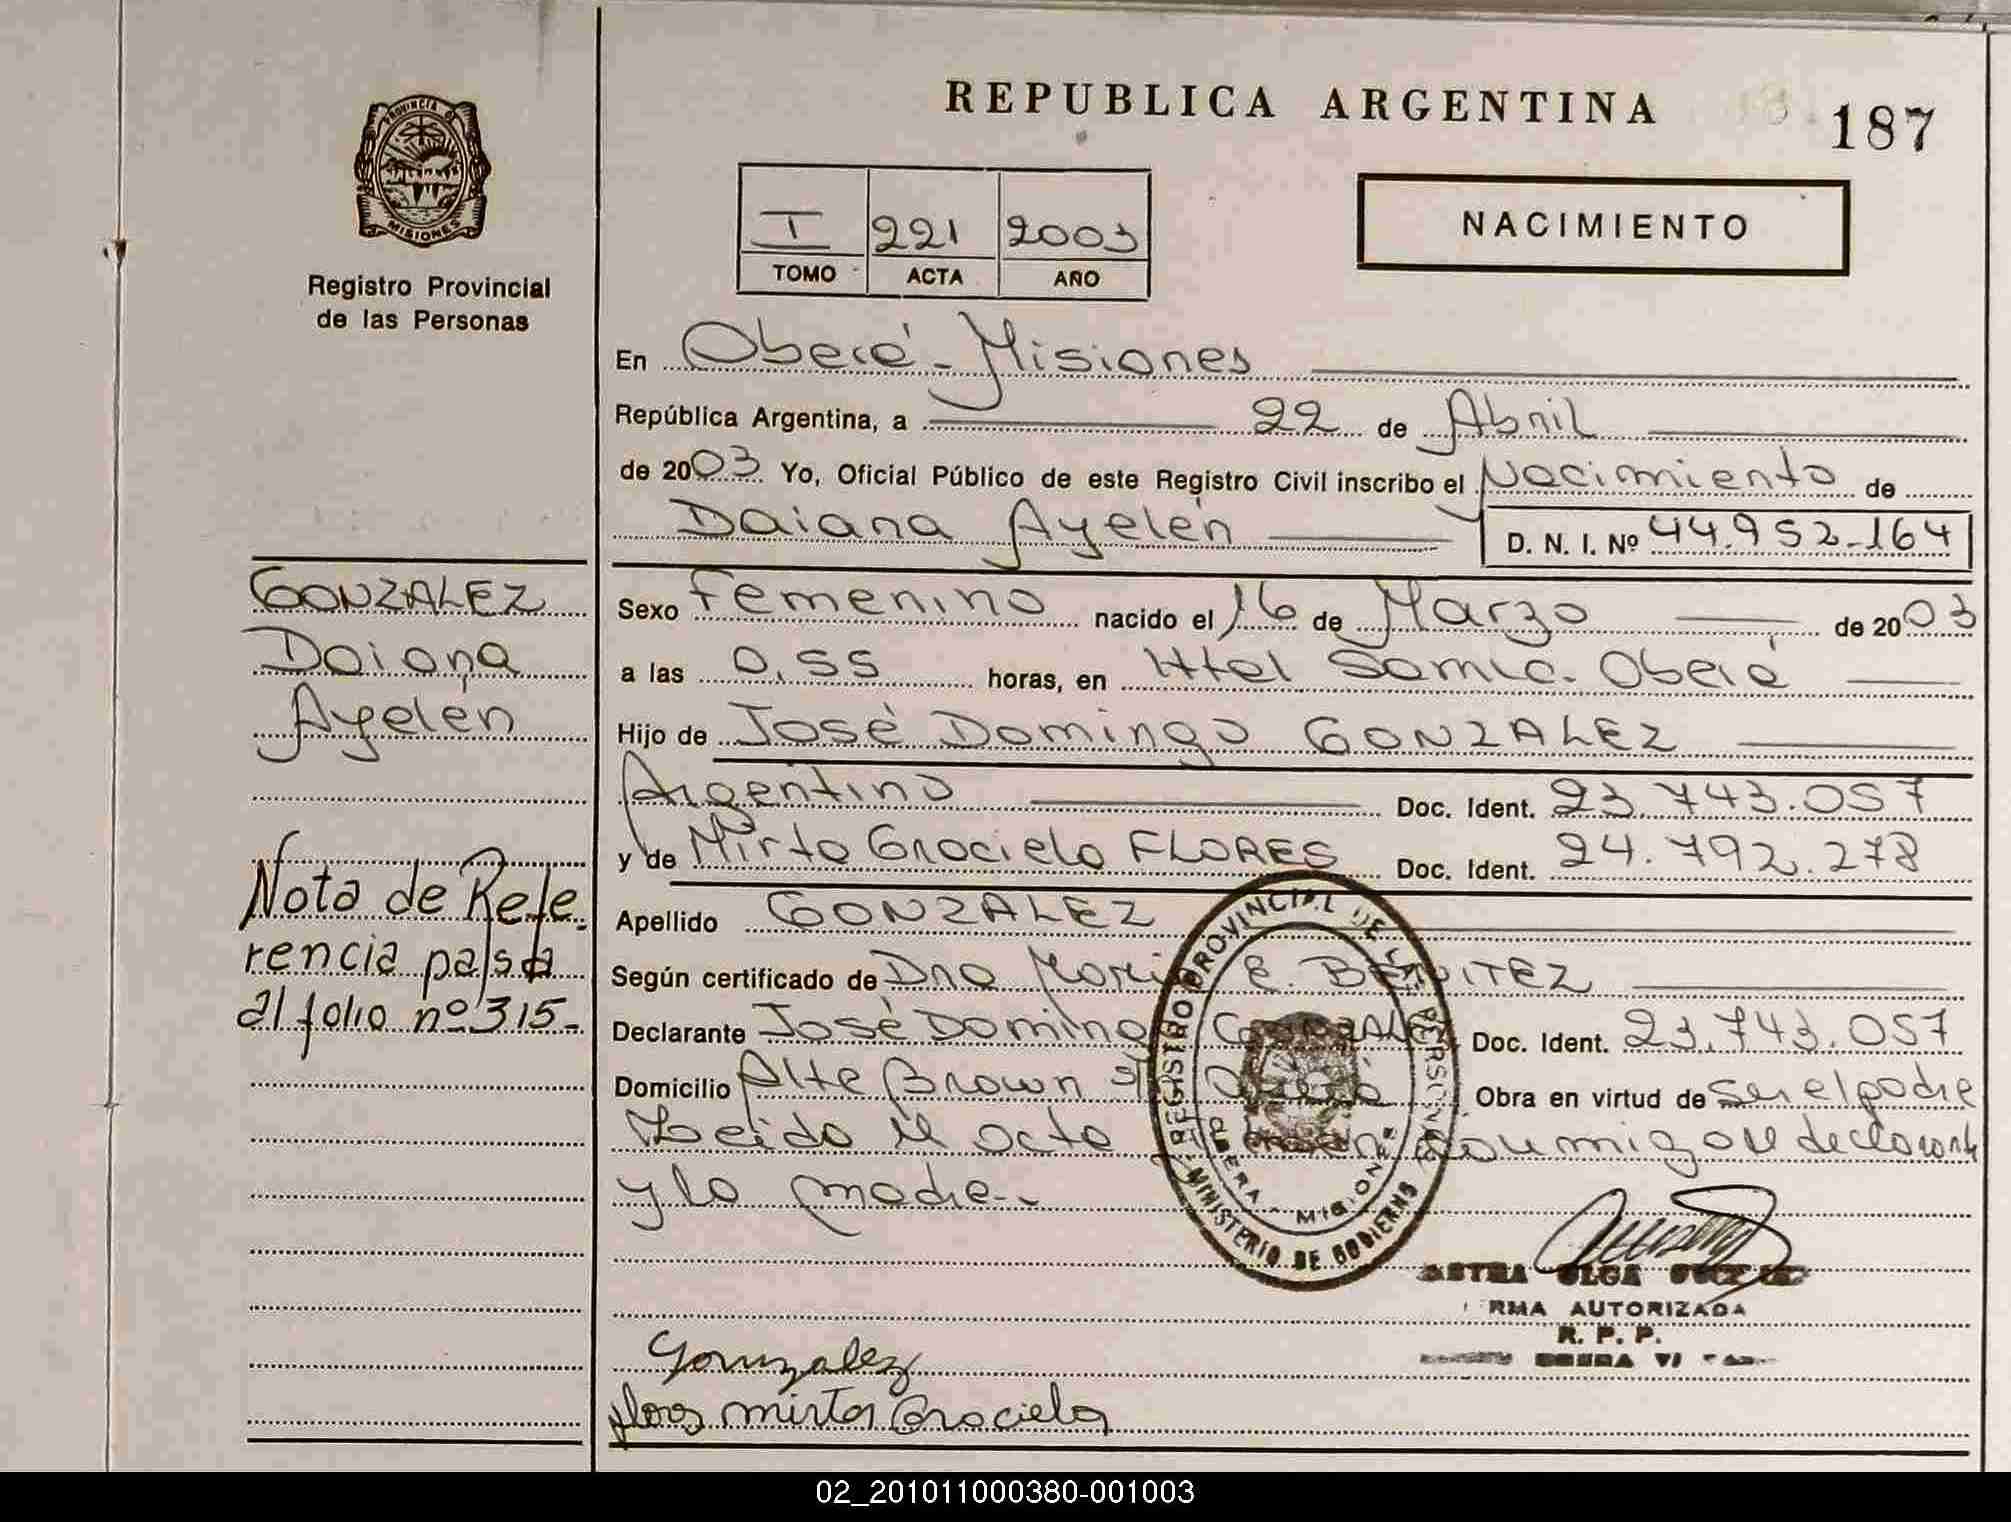 REPUBLICA ARGENTINA
187
PROVINCIA DE
MISIONES
Registro Provincial
de las Personas
I 221 2003
TOMO ACTA AÑO
NACIMIENTO
En Oberá - Misiones
República Argentina, a 22 de Abril
de 2003 Yo, Oficial Público de este Registro Civil inscribo el Nacimiento de
Daiana Ayelén D. N. I. Nº 44.952.164
GONZALEZ
Daiana
Ayelén
Nota de Refe-
rencia pasa
al folio nº 315-
Sexo Femenino nacido el 16 de Marzo de 2003
a las 0,55 horas, en Htal Samic. Oberá
Hijo de José Domingo GONZALEZ
Argentino Doc. Ident. 23.743.057
y de Mirta Graciela FLORES Doc. Ident. 24.792.278
Apellido GONZALEZ
Según certificado de Dra E. BENITEZ
Declarante José Domingo GONZALEZ Doc. Ident. 23.743.057
Domicilio Alte Brown Oberá Obra en virtud de ser el padre
Leida el acta conmigo el declarante
y la madre.-
REGISTRO PROVINCIAL DE LAS PERSONAS
MINISTERIO DE GOBIERNO
OBERA - MISIONES
OLGA
RMA AUTORIZADA
R. P. P.
Gonzalez
flores mirta Graciela
02_201011000380-001003